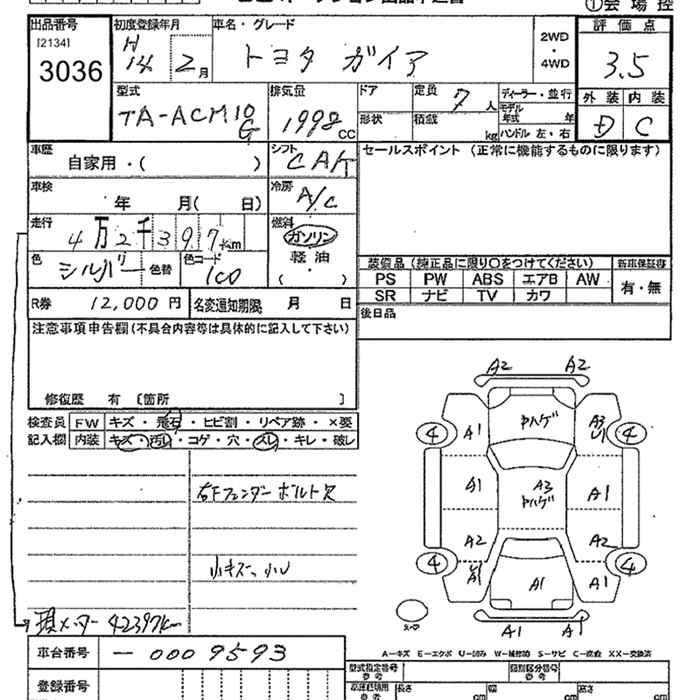 ①会場控
出品番号 初度登録年月 車名・グレード 評価点
[2134] H 14 2月 トヨタ ガイア 2WD・4WD 3.5
3036
型式 排気量 ドア 定員 7人 ディーラー・並行 外装 内装
TA-ACM10G 1998cc 形状 積載 kg モデル年式 年 D C
ハンドル 左・右
車歴 シフト セールスポイント (正常に機能するものに限ります)
自家用・( ) CA/T
車検 冷房
年 月( 日) A/C
走行 燃料
4万2千397km ガソリン
色 色替 色コード 軽油
シルバー 100 ( )
装備品 (純正品に限り○をつけてください) 新車保証書
PS PW ABS エアB AW 有・無
SR ナビ TV カワ
R券 12,000円 名変通知期限 月 日 後日品
注意事項申告欄(不具合内容等は具体的に記入して下さい)
修復歴 有 〔箇所 〕
検査員 FW キズ・飛石・ヒビ割・リペア跡・×要
記入欄 内装 キズ・汚れ・コゲ・穴・スレ・キレ・破レ
右Fフェンダー ボルト欠
小キズ、小U
現メーター 42397km
A2 A2
4 A1 ヤハゲ A3 U1 4
A1 A3 ヤハゲ A1
A2 A2
4 A1 A1 A1 4
スペア
A1 A1
A-キズ E-エクボ U-凹み W-補修跡 S-サビ C-腐食 XX-交換済
車台番号 -0009593
型式指定番号 参考 類別区分番号 参考
登録番号 長さ cm 幅 cm 高さ cm
参考